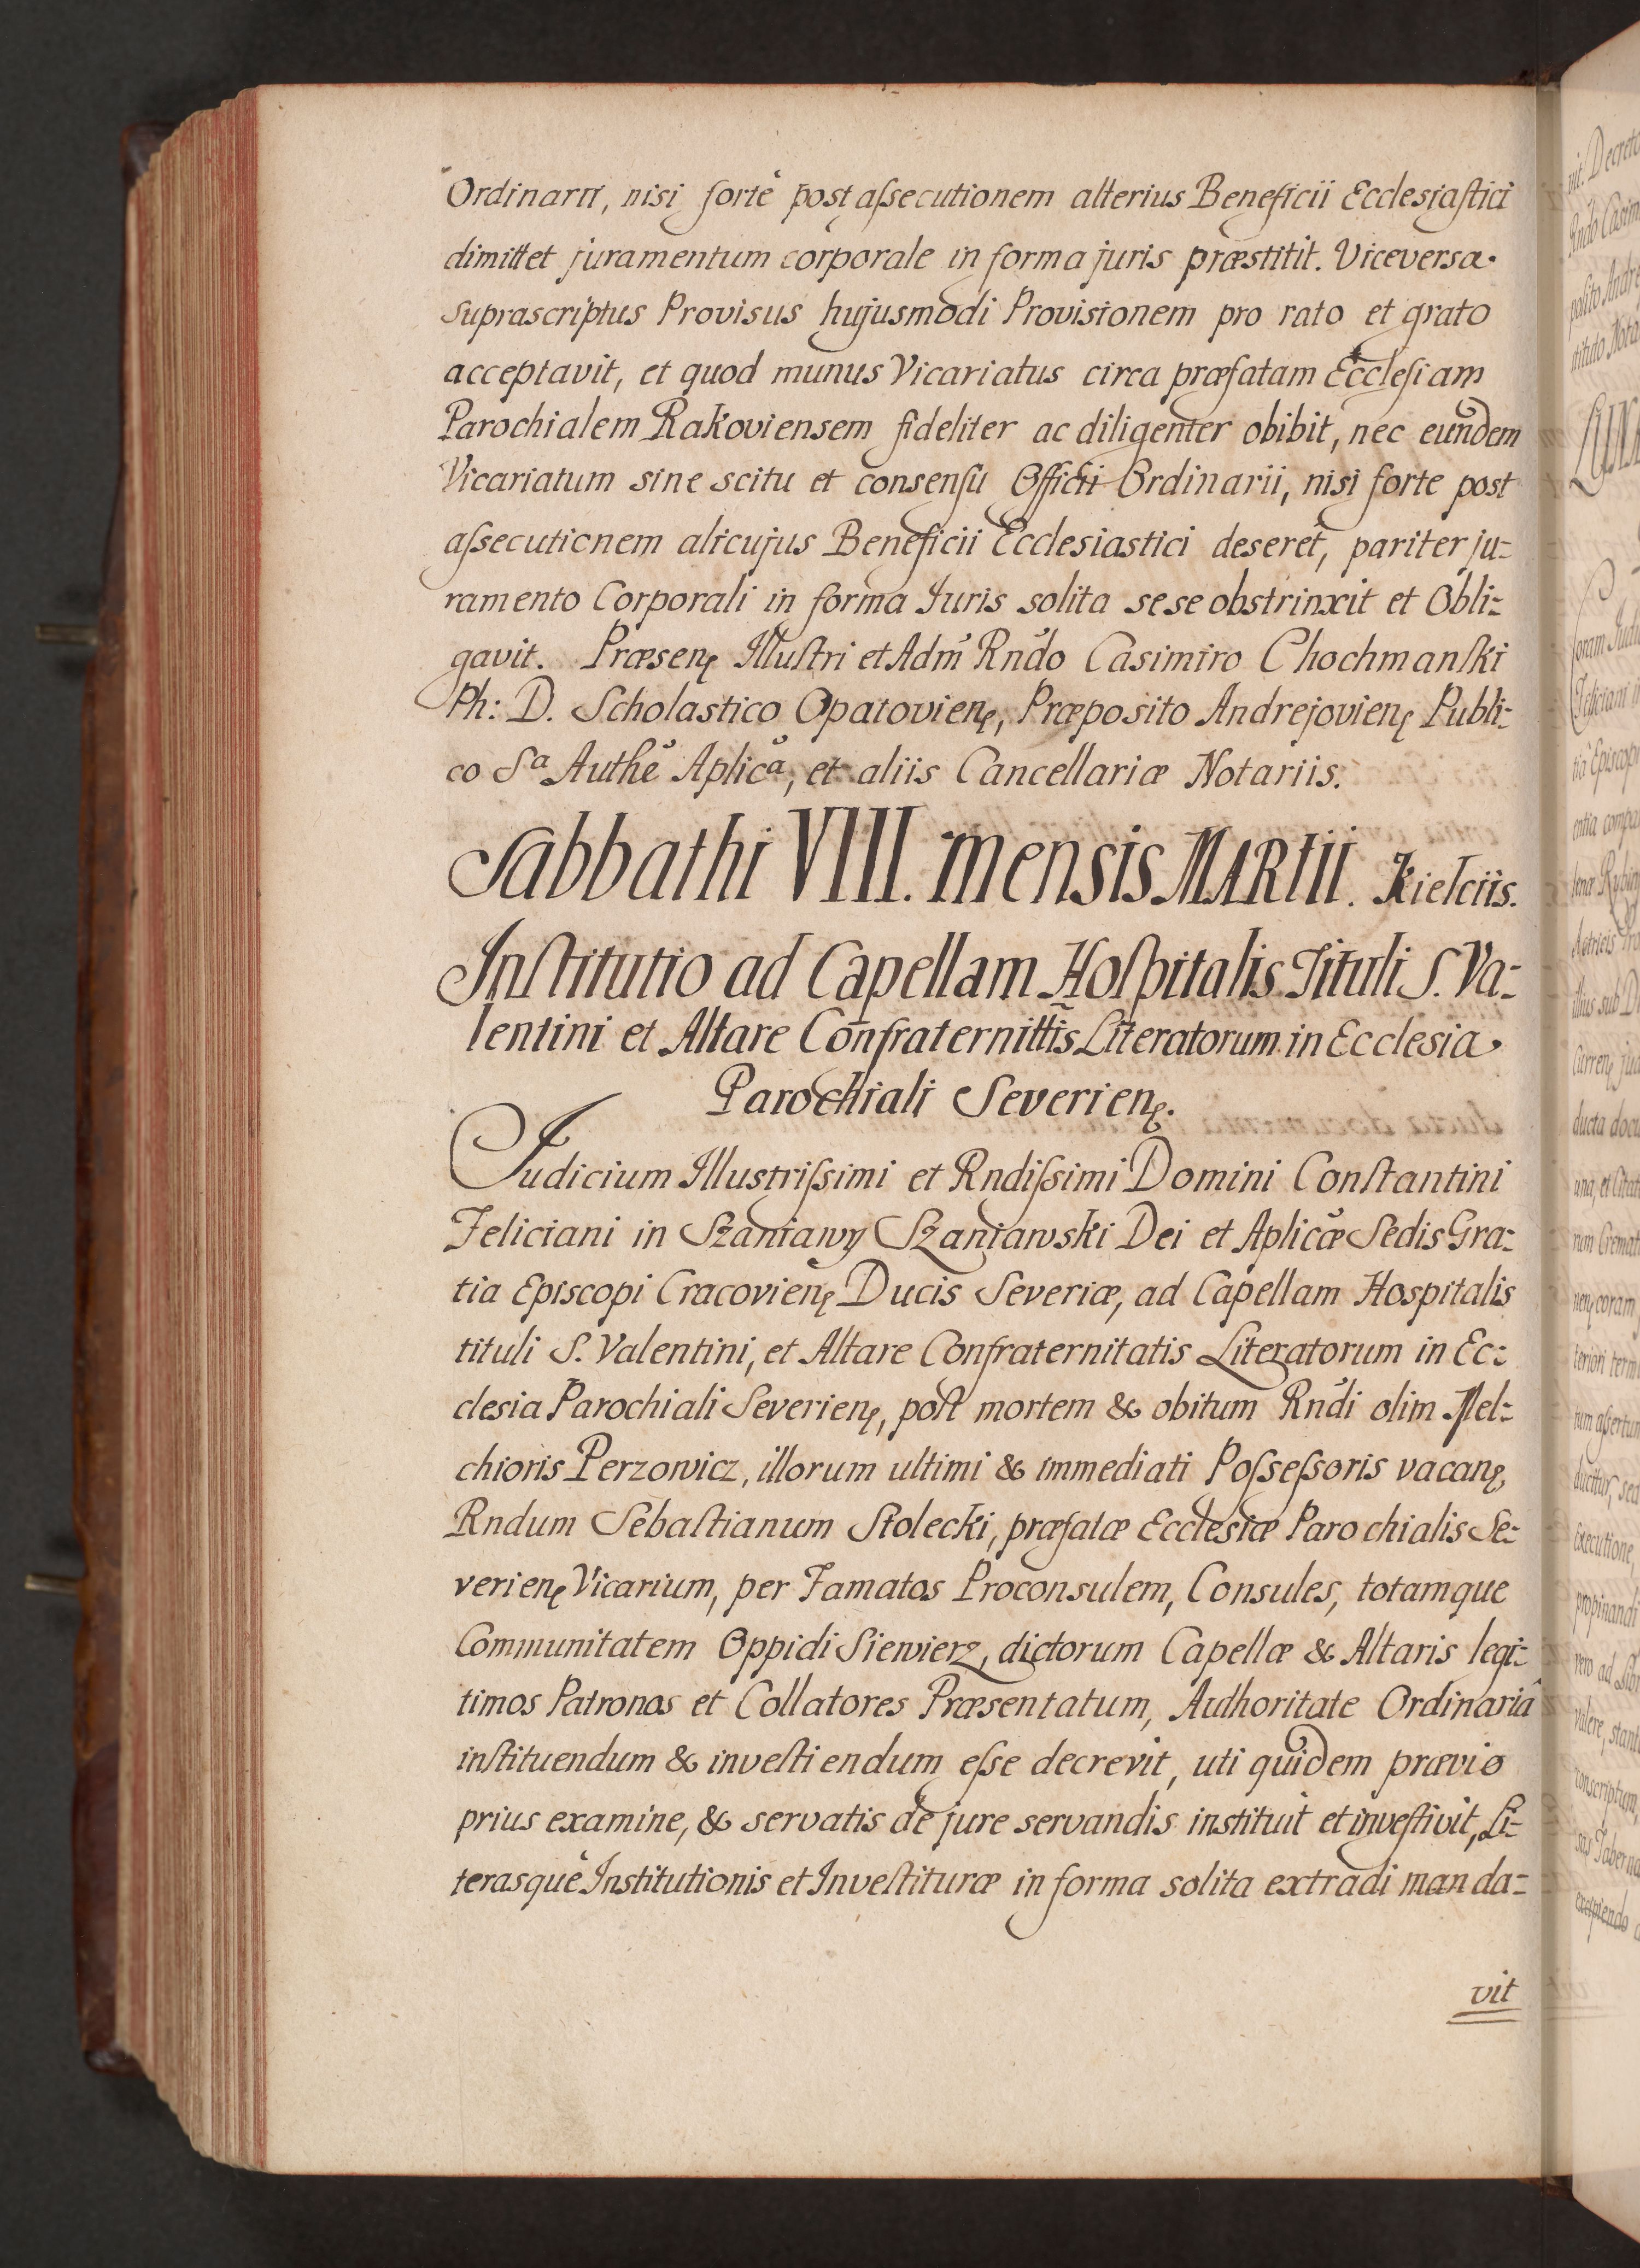 Ordinarii, nisi fortè post aſsecutionem alterius Beneficii Ecclesiaſtici
dimittet juramentum corporale in forma juris præstitit. Viceversa
suprascriptus Provisus hujusmodi Provisionem pro rato et grato
acceptavit, et quod munus Vicariatus circa præfatam Eccleſiam
Parochialem Rakoviensem fideliter ac diligenter obibit, nec eundem
Vicariatum sine scitu et consenſu Officii Ordinarii, nisi forte post
aſsecutionem alicujus Beneficii Ecclesiastici deseret, pariter ju=
ramento Corporali in forma Iuris solita sese obstrinxit et Obli=
gavit. Præsenꝭ Illuſtri et Adm̃ Rñdo Casimiro Chochmanſki
Ph: D. Scholastico Opatovienꝭ, Præposito Andrejovienꝭ Publi=
co Sª Authẽ Aplicã, et aliis Cancellariæ Notariis.
Sabbathi VIII. mensis MARtii. Kielciis.
Inſtitutio ad Capellam Hoſpitalis Tituli S. Va=
lentini et Altare Confraternitt̃is Literatorum in Ecclesia
Parochiali Severienꝭ.
Judicium Illustriſsimi et Rndiſsimi Domini Conſtantini
Feliciani in Szaniawy Szaniawski Dei et Aplicæ̃ Sedis Gra=
tia Episcopi Cracovienꝭ Ducis Severiæ, ad Capellam Hospitalis
tituli S. Valentini, et Altare Confraternitatis Literatorum in Ec=
clesia Parochiali Severienꝭ, poſt mortem & obitum Rñdi olim Mel=
chioris Perzowicz, illorum ultimi & immediati Poſseſsoris vacanꝭ
Rndum Sebaſtianum Stolecki, præfatæ Ecclesiæ Parochialis Se=
verienꝭ Vicarium, per Famatos Proconsulem, Consules, totamque
Communitatem Oppidi Siewierz, dictorum Capellæ & Altaris legi=
timos Patronos et Collatores Præsentatum, Authoritate Ordinariâ
inſtituendum & inveſtiendum eſse decrevit, uti quidem prævio
prius examine, & servatis de jure servandis instituit et inveſtivit, Li=
terasquè Institutionis et Inveſtituræ in forma solita extradi manda=
vit